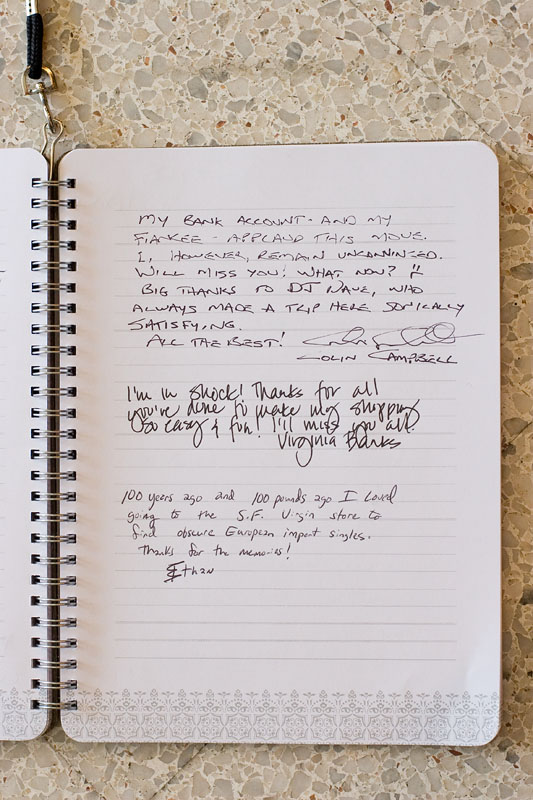 MY BANK ACCOUNT - AND MY
FIANKEE - APPLAUD THIS MOVE.
I, HOWEVER, REMAIN UNCONVINCED.
WILL MISS YOU! WHAT NOW?
BIG THANKS TO DJ DAVE, WHO
ALWAYS MADE A TRIP HERE SONICALLY
SATISFYING.
ALL THE BEST!
COLIN CAMPBELL
I'm in shock! Thanks for all
you've done to make my shopping
so easy & fun! I'll miss you all.
Virginia Banks
100 years ago and 100 pounds ago I loved
going to the S.F. Virgin store to
find obscure European import singles.
Thanks for the memories!
Ethan